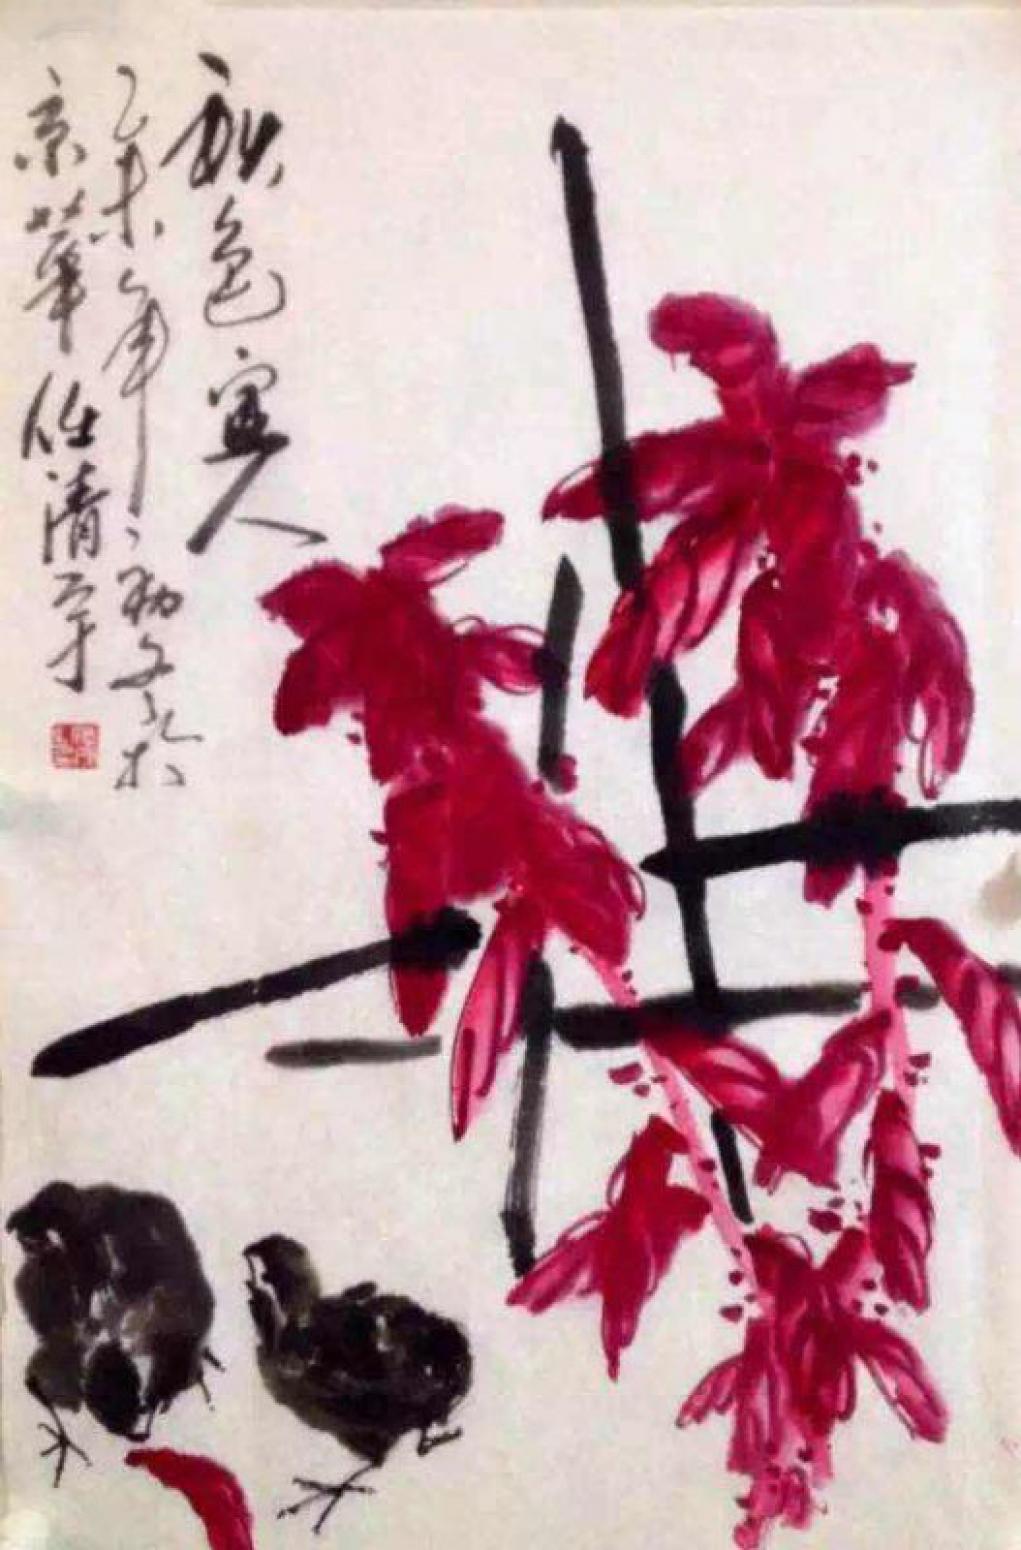 秋色宜人
乙未年初冬於
京華任清